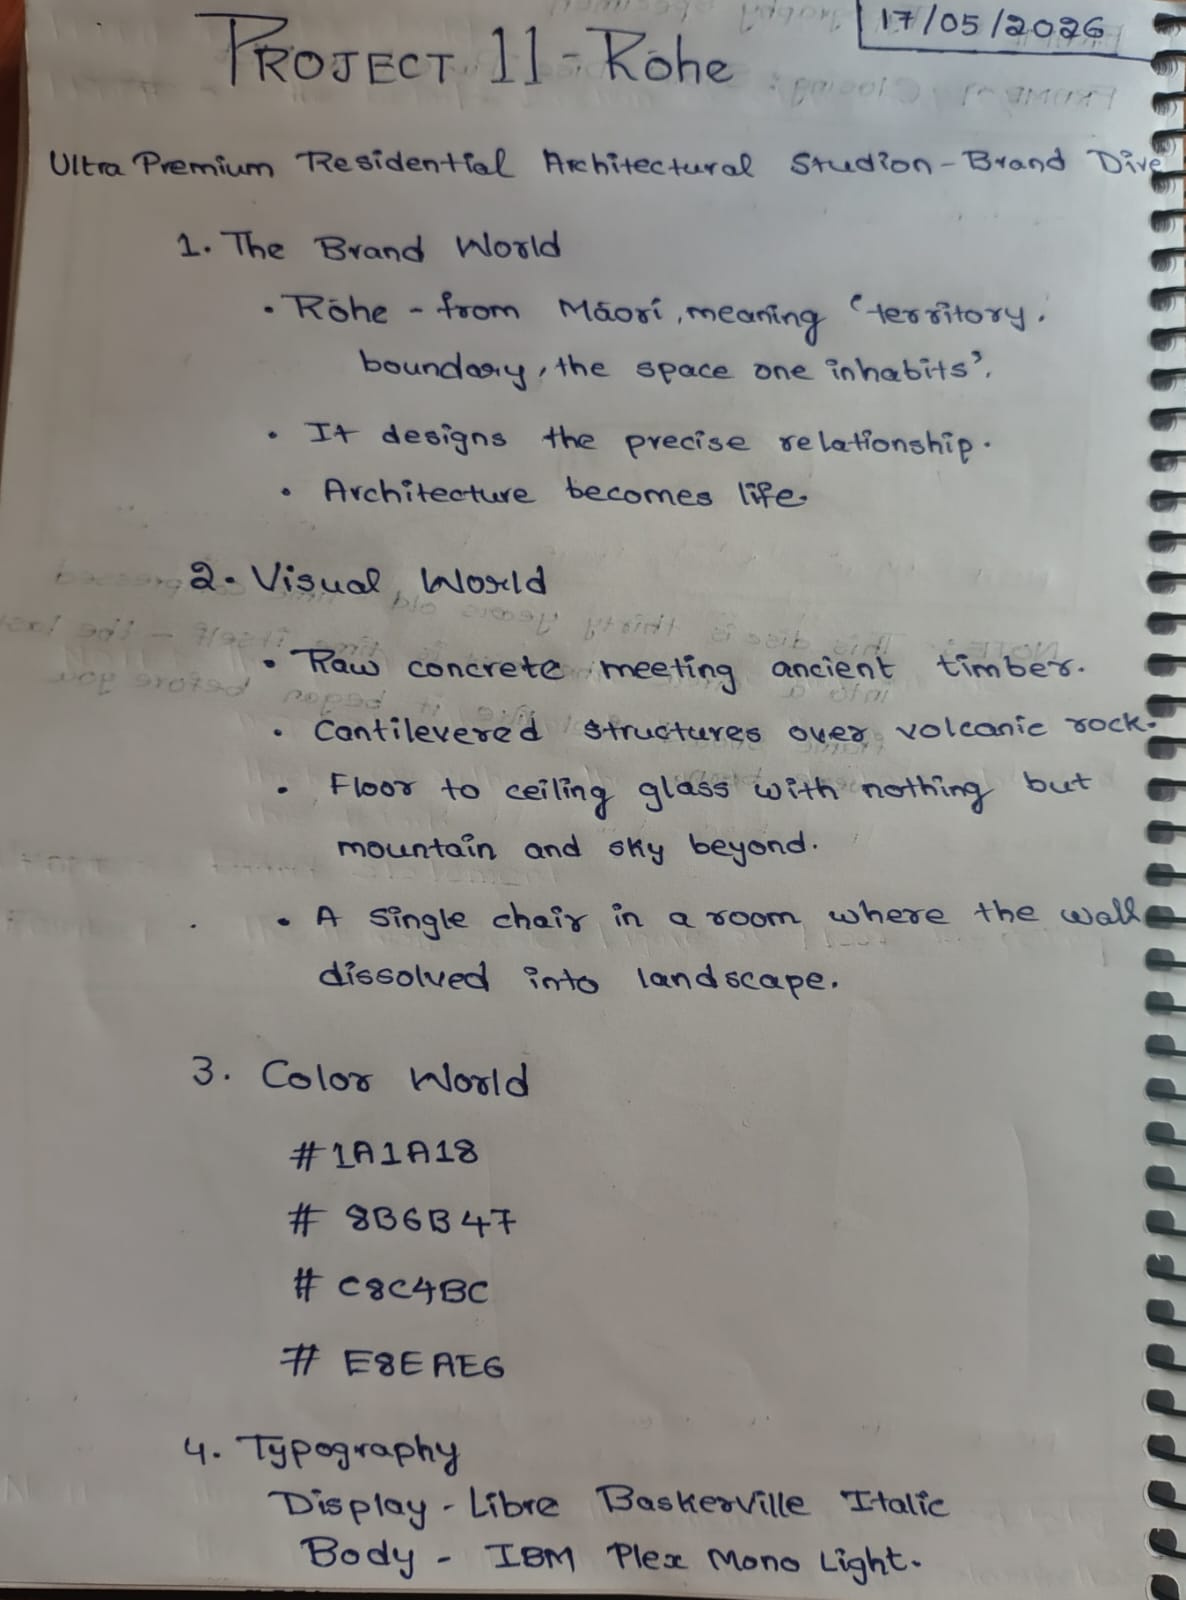 17/05/2026
PROJECT 11 - Rōhe
Ultra Premium Residential Architectural Studion - Brand Dive
1. The Brand World
• Rōhe - from Māori, meaning 'territory.
boundary, the space one inhabits'.
• It designs the precise relationship.
• Architecture becomes life.
2. Visual World
• Raw concrete meeting ancient timber.
• Cantilevered structures over volcanic rock.
• Floor to ceiling glass with nothing but
mountain and sky beyond.
• A single chair in a room where the wall
dissolved into landscape.
3. Color World
#1A1A18
# 8B6B47
# C8C4BC
# E8EAE6
4. Typography
Display - Libre Baskerville Italic
Body - IBM Plex Mono Light.